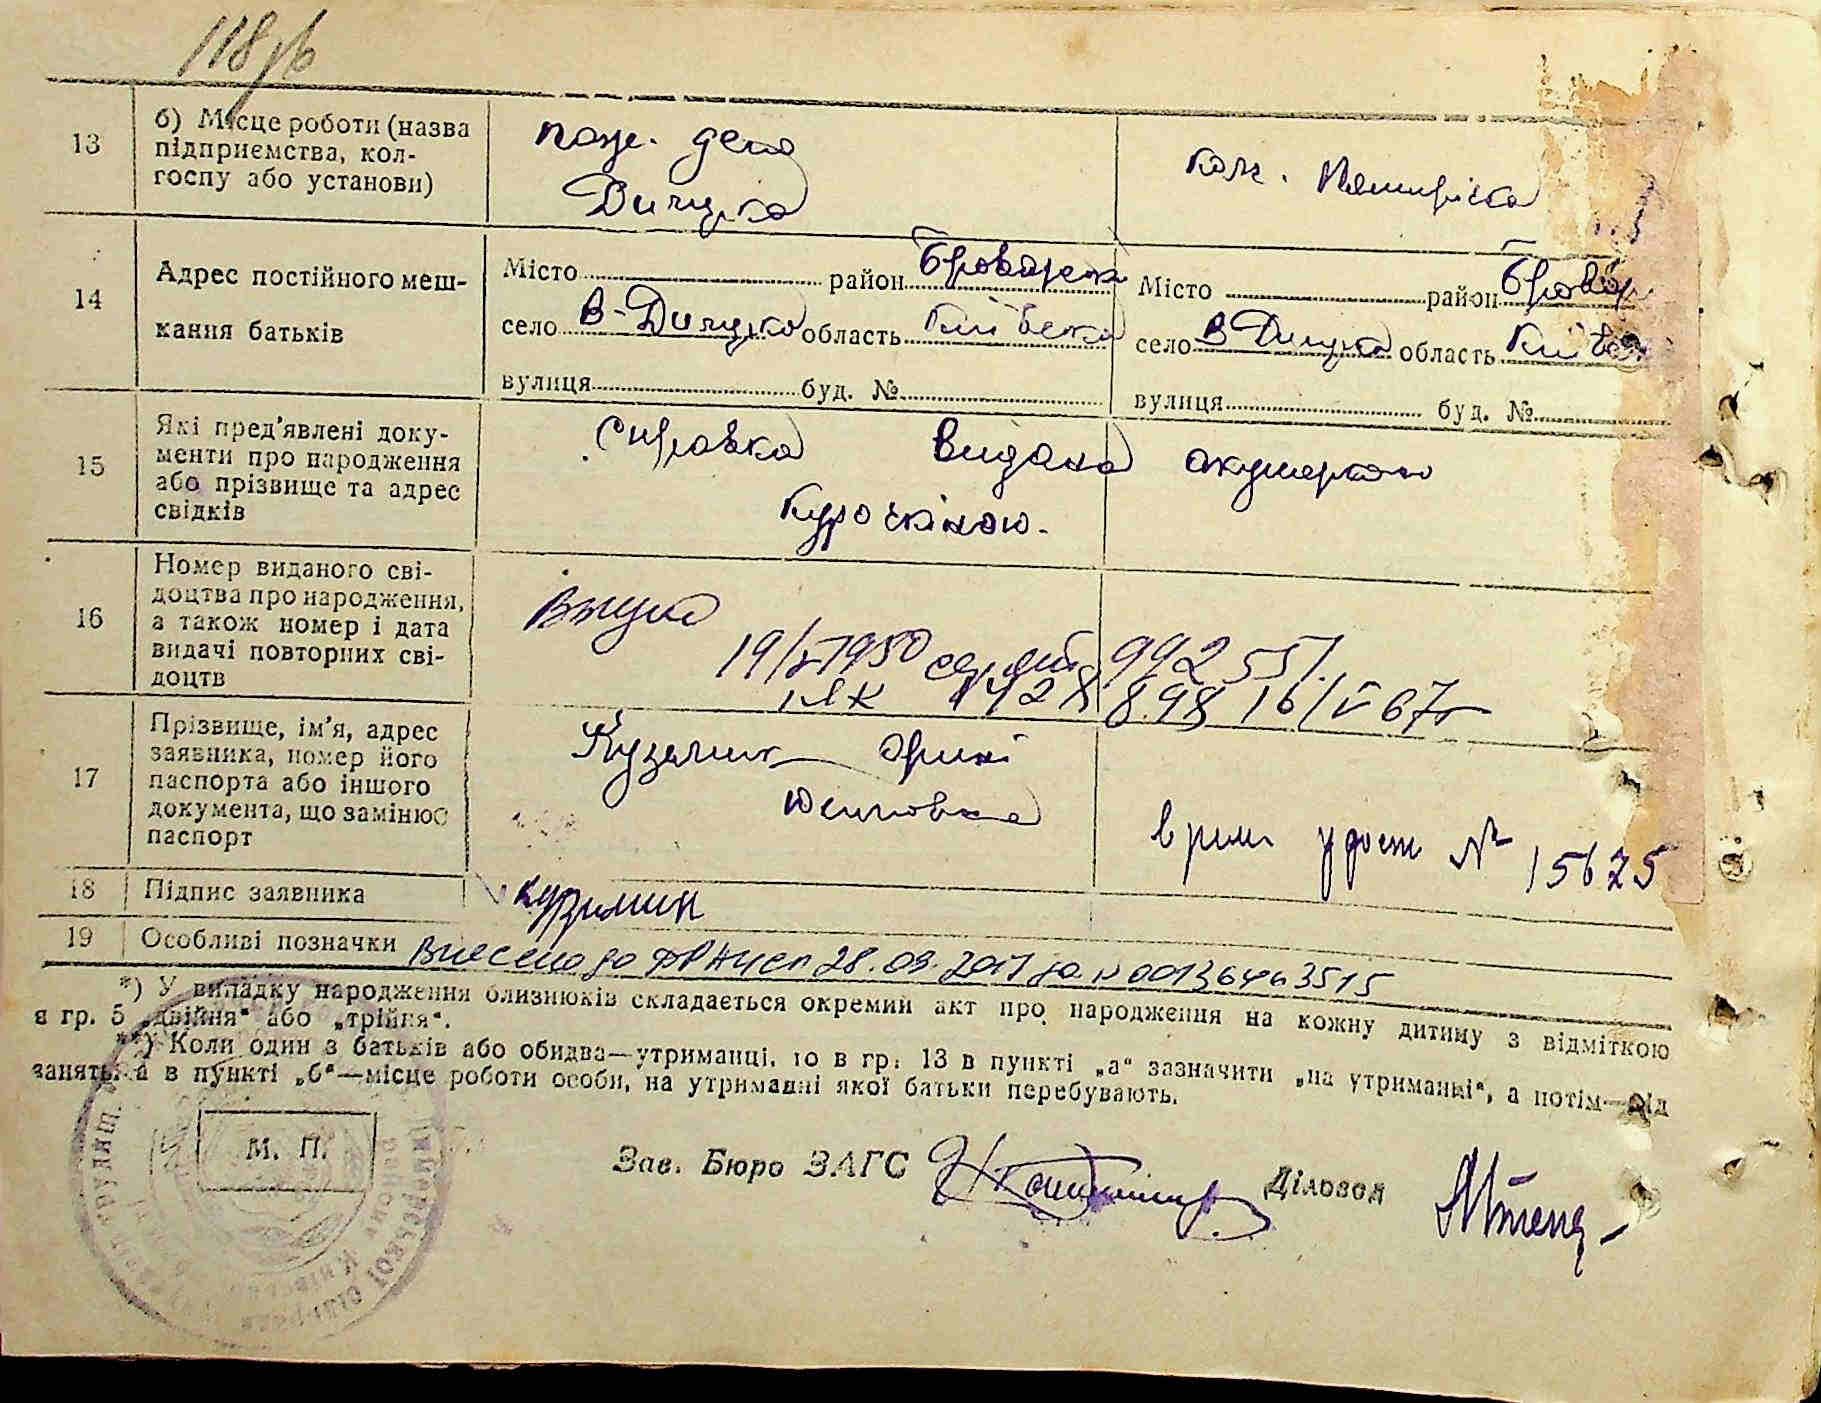 118 зв
13
б) Місце роботи (назва
підприємства, кол-
госпу або установи)
пож. депо
Димерка
колг.
14
Адрес постійного меш-
кання батьків
Місто район Броварськ
село В-Димерка область Київська
вулиця буд. №
Місто район Бровар
село В Димерка область Київсь
вулиця буд. №
15
Які пред'явлені доку-
менти про народження
або прізвище та адрес
свідків
Справка видана акушеркою
Курочкіною.
16
Номер виданого сві-
доцтва про народження,
а також номер і дата
видачі повторних сві-
доцтв
19/V 1950 99255
1428898 16/V 67г
17
Прізвище, ім'я, адрес
заявника, номер його
паспорта або іншого
документа, що замінює
паспорт
Кузьмик
Юсиповна
врем удост № 15625
18
Підпис заявника
19
Особливі позначки Внесено до ДРАЦСГ 28.09.2017 за № 00136463515
*) У випадку народження близнюків складається окремий акт про народження на кожну дитину з відміткою
в гр. 5 „двійня“ або „трійня“.
**) Коли один з батьків або обидва—утриманці, то в гр. 13 в пункті „а“ зазначити „на утриманні“, а потім—рід
занять, а в пункті „б“—місце роботи особи, на утриманні якої батьки перебувають.
М. П.
Зав. Бюро ЗАГС
Діловод